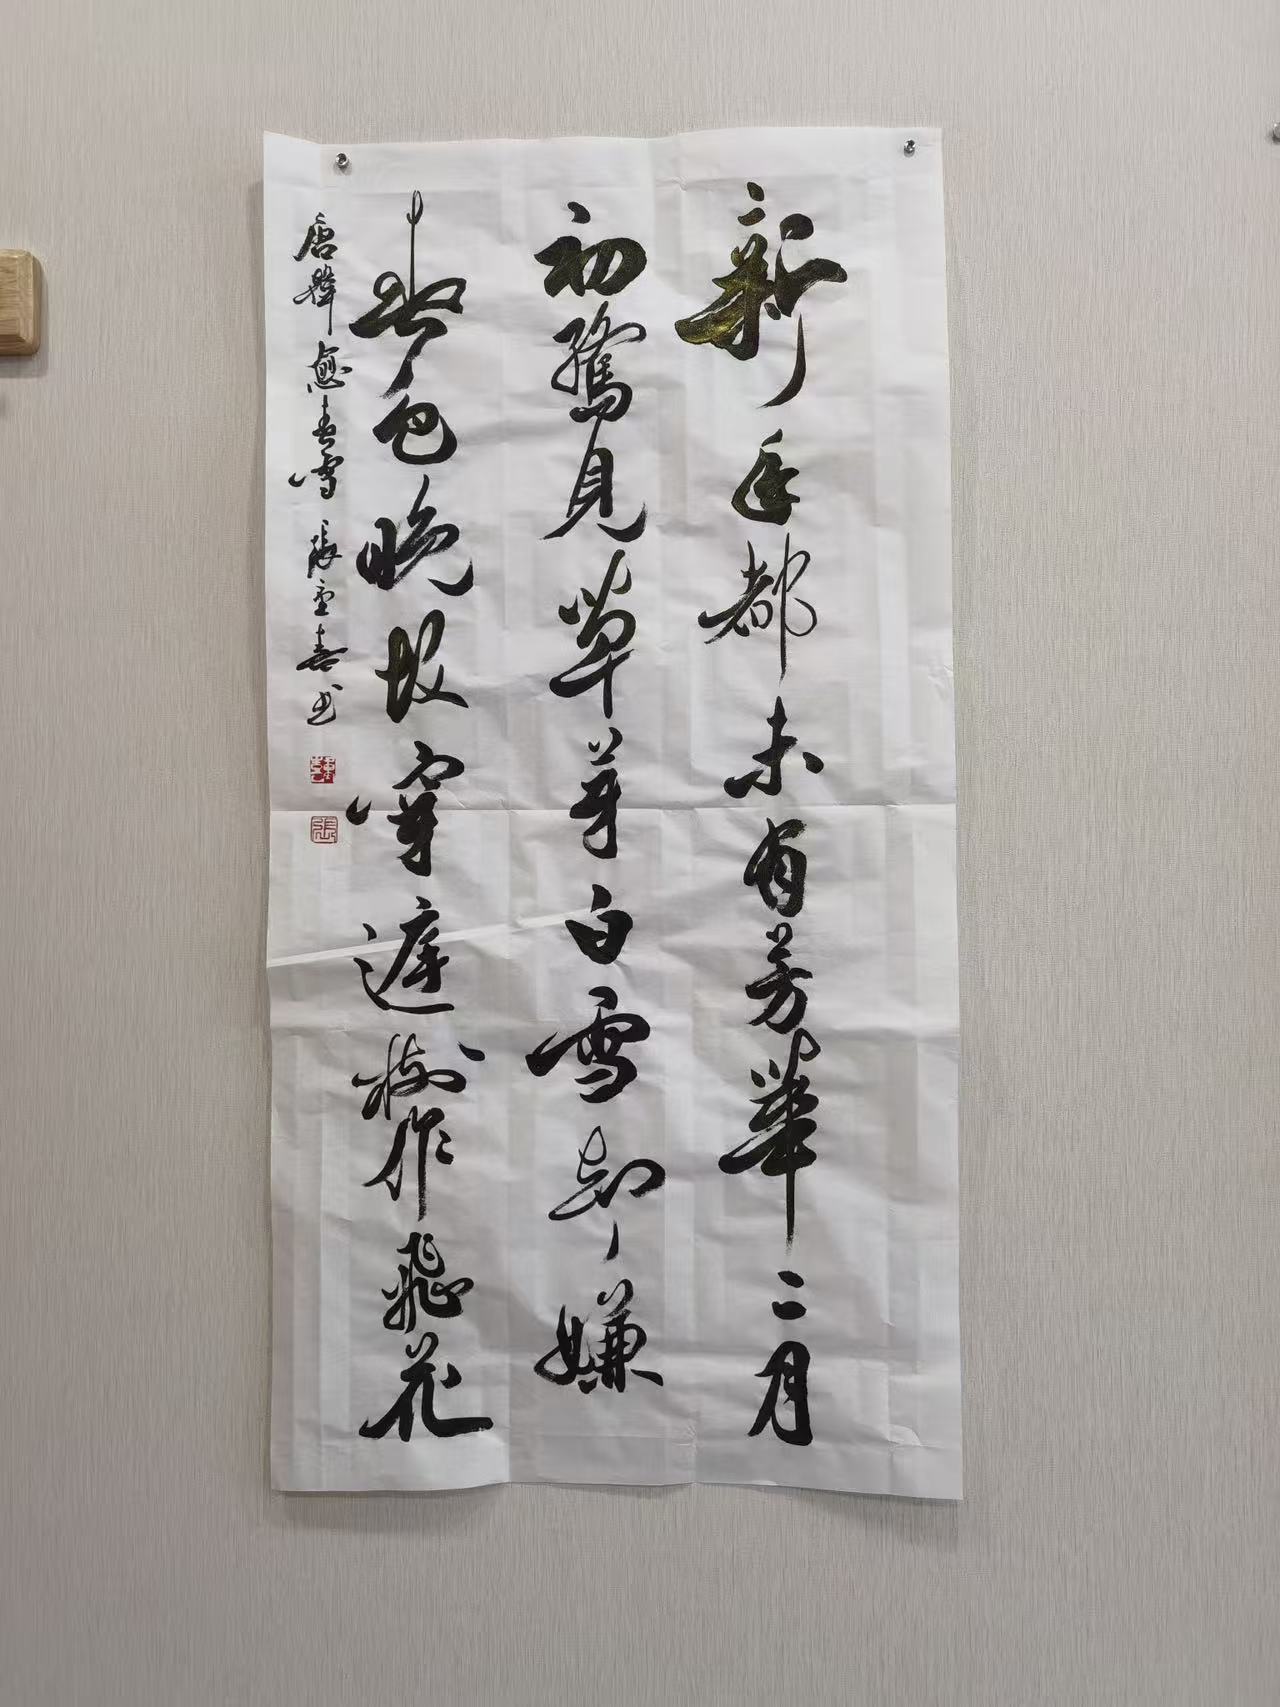 新年都未有芳華二月
初驚見草芽白雪却嫌
春色晚故穿庭樹作飛花
唐韓愈春雪 張重喜书
張